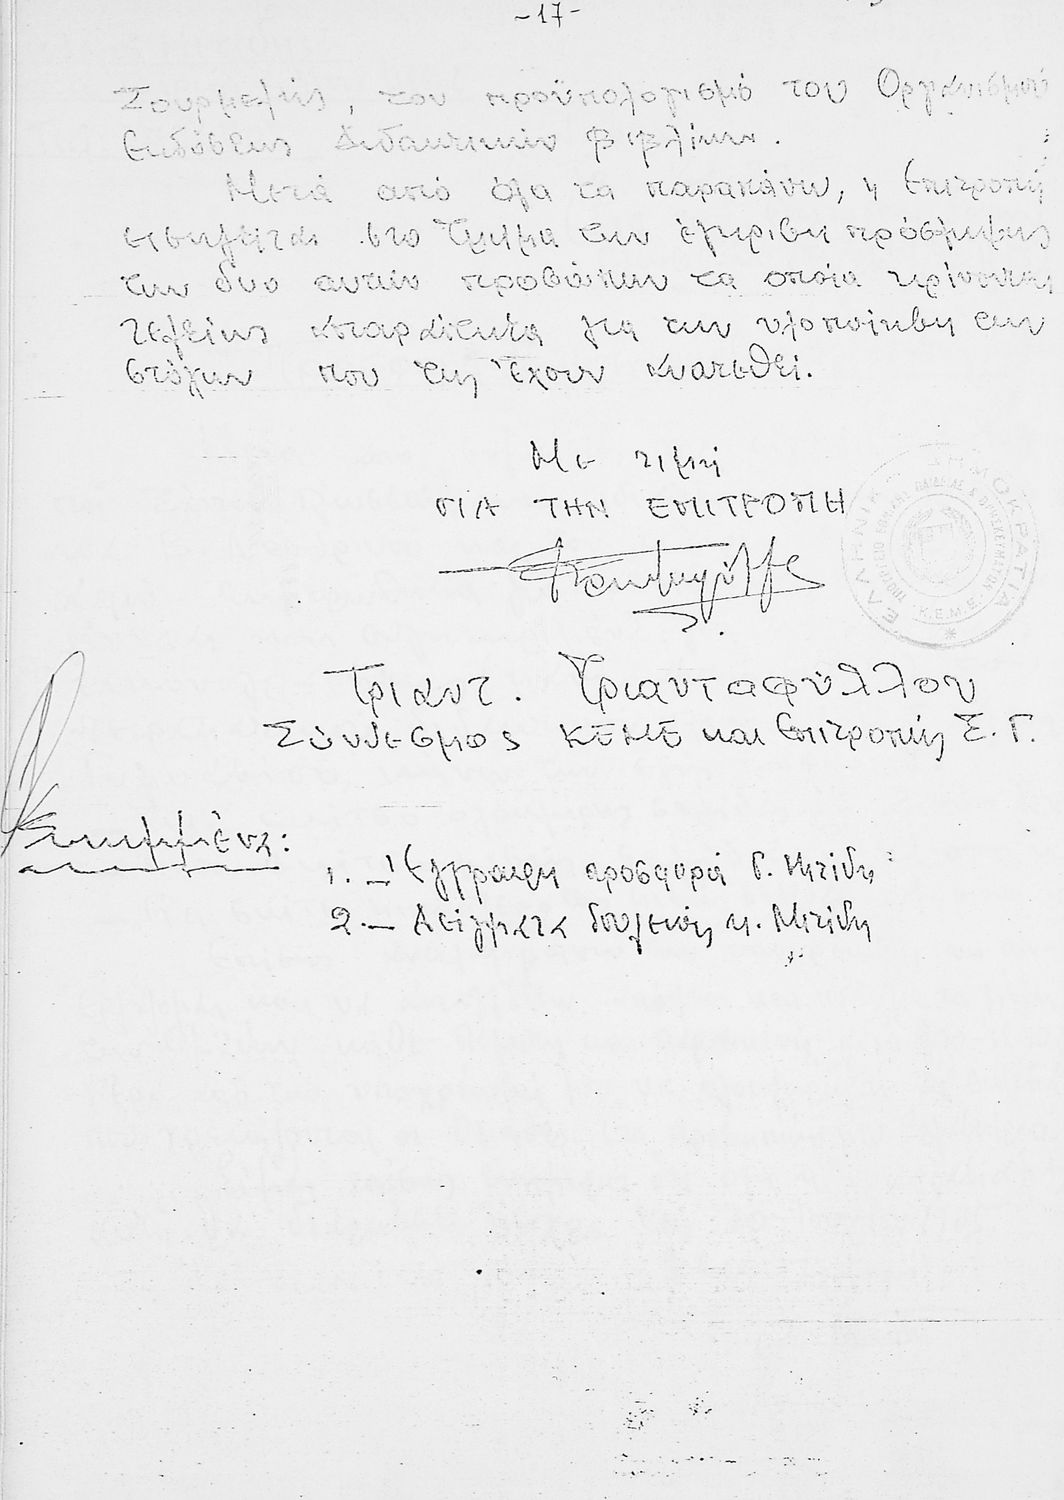 -17-
τον προϋπολογισμό του Οργανισμού
Εκδόσεως Διδακτικών Βιβλίων.
Μετά από όλα τα παραπάνω, η Επιτροπή
εισηγείται στο Τμήμα την έγκριση πρόσληψης
των δύο αυτών προσώπων τα οποία κρίνονται
τελείως απαραίτητα για την υλοποίηση των
στόχων που της έχουν ανατεθεί.
Με τιμή
ΓΙΑ ΤΗΝ ΕΠΙΤΡΟΠΗ
ΕΛΛΗΝΙΚΗ ΔΗΜΟΚΡΑΤΙΑ
Κ.Ε.Μ.Ε.
Τριαντ. Τριανταφύλλου
Σύνδεσμος ΚΕΜΕ και Επιτροπής Σ.Γ.
Συνημμένα:
1.- Έγγραφη προσφορά Γ. Μετίδη
2.- Δείγματα δουλειάς κ. Μετίδη